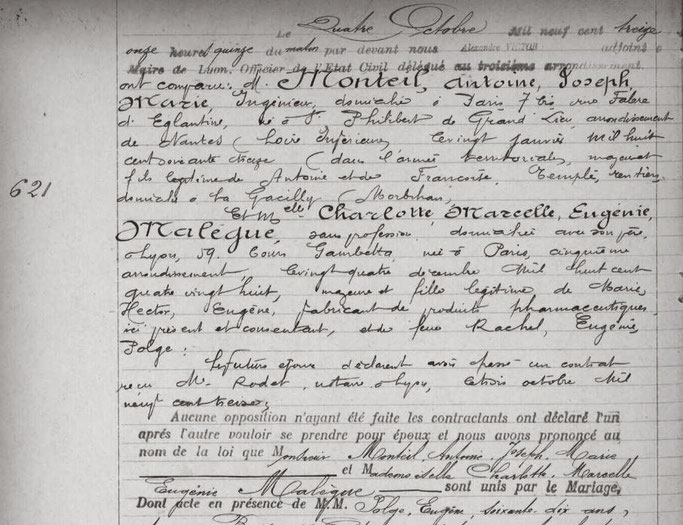 Le Quatre Octobre Mil neuf cent treize
onze heures quinze du matin par devant nous Alexandre VICTOR adjoint
Maire de Lyon, Officier de l'Etat Civil délégué au troisième arrondissement
ont comparu: M. Monteil, Antoine, Joseph,
Marie, Ingénieur, domicilié à Paris 7 bis, rue Fabre
d'Eglantine, né à St Philibert de Grand Lieu arrondissement
de Nantes (Loire Inférieure) le vingt janvier mil huit
cent soixante treize (dans l'armée territoriale), majeur et
fils légitime de Antoine et de Françoise, Templé, rentiers
domiciliés à La Gacilly (Morbihan)
621
Et Melle Charlotte, Marcelle, Eugénie,
Malègue, sans profession, domiciliée avec son père
à Lyon, 59. Cours Gambetta, née à Paris, cinquième
arrondissement, le vingt quatre décembre Mil huit cent
quatre vingt huit, majeure et fille légitime de Marie
Hector, Eugène, fabricant de produits pharmaceutiques
ici présent et consentant, et de feue Rachel, Eugénie
Polge:
Les futurs époux déclarent avoir passé un contrat
reçu Me Rodet, notaire à Lyon, le trois octobre Mil
neuf cent treize;
Aucune opposition n'ayant été faite les contractants ont déclaré l'un
après l'autre vouloir se prendre pour époux et nous avons prononcé au
nom de la loi que Monsieur Monteil Antoine Joseph, Marie
et Mademoiselle Charlotte, Marcelle
Eugénie Malègue sont unis par le Mariage,
Dont acte en présence de M.M. Polge, Eugène, soixante dix ans,